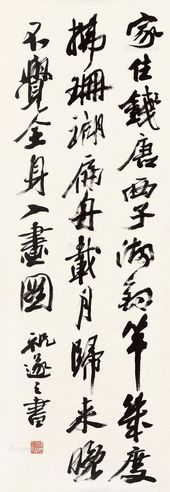 家住錢唐西子湖釣竿幾度
拂珊瑚扁舟載月歸來晚
不覺全身入畫圖
祝遂之書